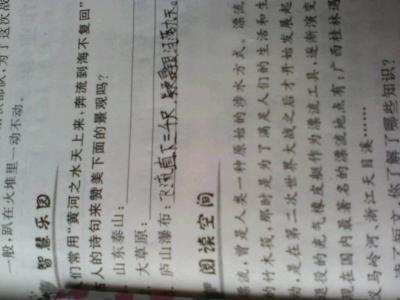 部队,为了这次战
一般,趴在火堆里一动不动。
智慧乐园
们常用“黄河之水天上来,奔流到海不复回”
古人的诗句来赞美下面的景观吗?
山东泰山:
大草原:
庐山瀑布:飞流直下三千尺,
阅读空间
漂流,曾是人类一种原始的涉水方式。漂流
的竹木筏,那时是为了满足人们的生活和生
动,是在第二次世界大战之后才开始发展起
退役的充气橡皮艇作为漂流工具,逐渐演变
现在国内最著名的漂流地点有:广西桂林遇
义马岭河、浙江天目溪……
读了短文,你了解了哪些知识?